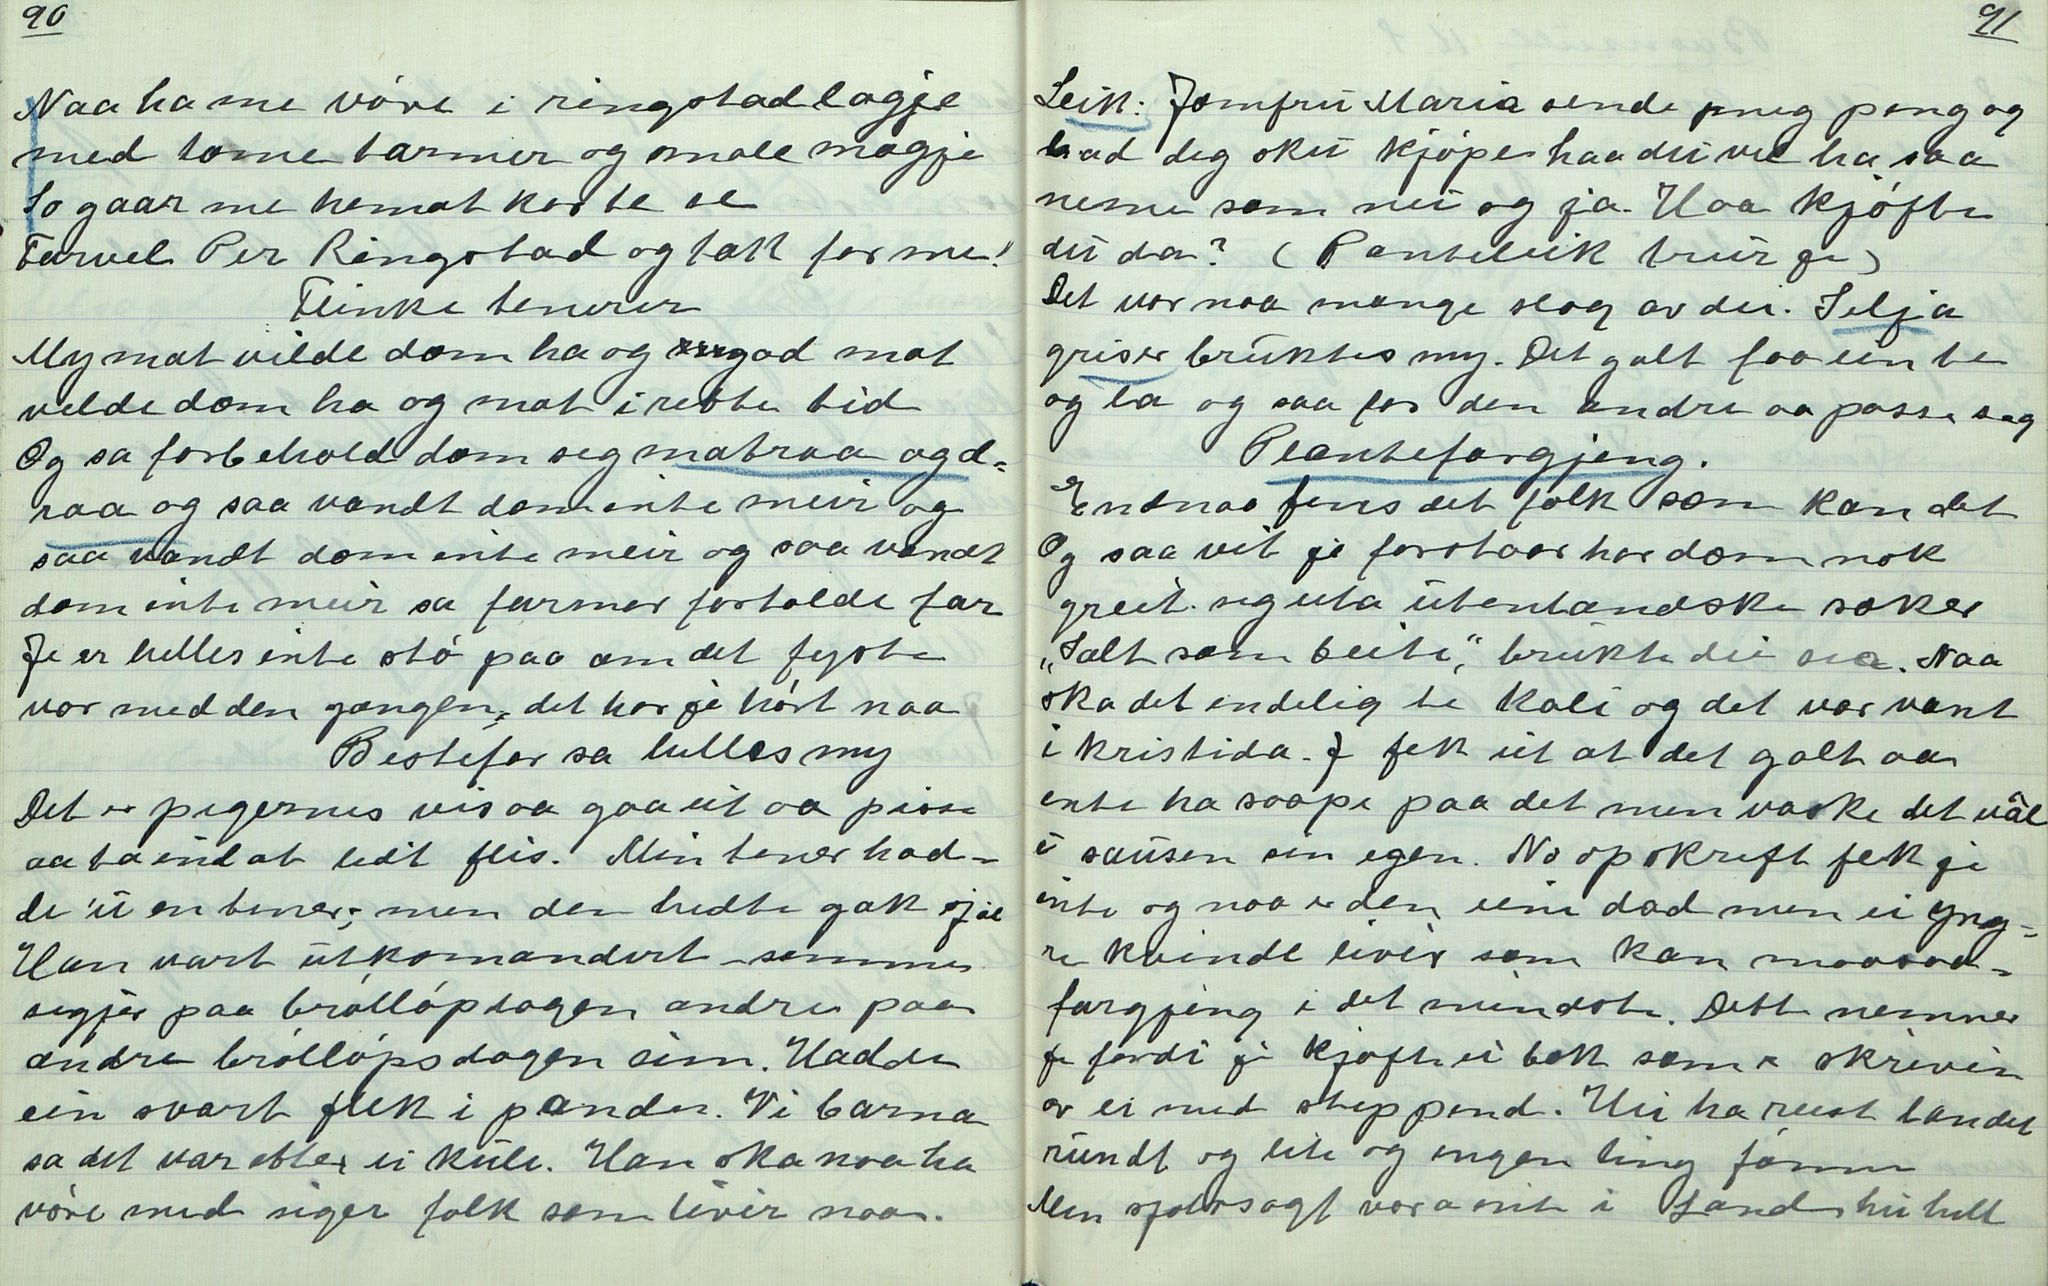 90
Naa ha me vóre i ringstadlagje
med tome tarmer og smale magje
So gaar me hemat korte se
Farvel Per Ringstad og takk for me!
Flinke tenerer
My mat vilde dom ha og god mat
velde dom ha og mat i rette tid
Og sa forbehold dom seg matraa og d=
raa og saa vandt dom inte meir og
saa vandt dom inte meir og saa vandt
dom inte meir sa farmor fortalde far
Je er helles inte stó paa om det fyste
var med den gangen, det har je hórt naa
Bestefar sa helles my
Det er pigernes vis aa gaa ut aa pisse
aa ta ind at lidt flis. Min tener had-
de 'u en tener, men den hedte gak sjøl
Han vart utkomandert - somme
segjer paa bróllópsdagen andre paa
andre bróllópsdagen sin. Hadde
ein svart flek i panden. Vi barna
sa det var etter ei kule. Han ska naa ha
vóre med siger folk som liver naa.
91
Leik: Jomfru Maria sende meg peng og
bad deg sku kjópe haa du vil ha saa
neme som nei og ja. Haa kjófte
du da? (Panteleik trur je)
Det var naa mange slag av dei. Selja
griser bruktes my. Det galt faa ein te
og la og saa for den andre aa passe seg
Plantefargjeng.
Endnaa fins det folk som kan det
Og saa vit je forstaar har dom nok
greit seg uta utenlandske saker
"Salt som beite," brukte dei sea. Naa
ska det endelig te kali og det var vant
i kristida. J fek ut at det galt aa
inte ha saape paa det men vaske det väl
i sausen sin egen. No opskrift fek je
inte og naa er den eine dad men ei yng-
re kvinde liver som kan
fargjeng i det mindste. Dett nemner
je fordi je kjófte ei bok som er skrivin
av ei med stippend. Hu ha reest landet
rundt og lite og ingen ting fónne
Men sjølsagt var a inte i Land hu helt